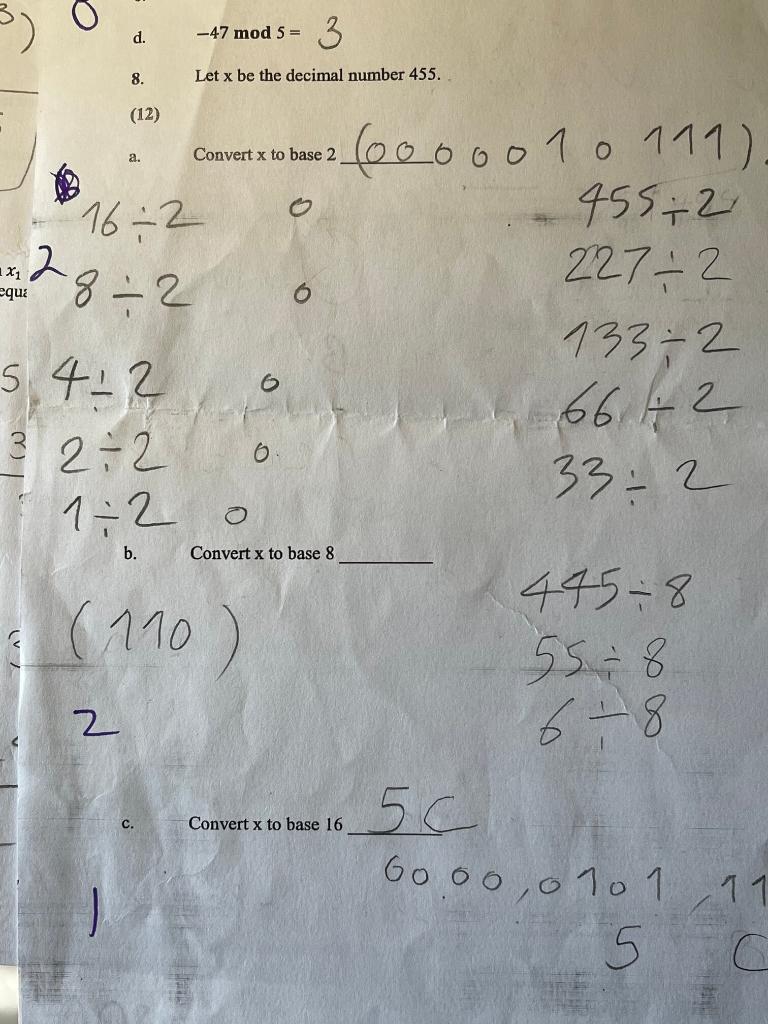 3)
0
d. −47 mod 5 = 3
8. Let x be the decimal number 455.
(12)
a. Convert x to base 2 (0000010111)
16÷2 0 455÷2
x₁ 2 8÷2 0 227÷2
equa
133÷2
5 4÷2 0 66÷2
3 2÷2 0 33÷2
1÷2 0
b. Convert x to base 8
445÷8
(110)
55÷8
2 6÷8
c. Convert x to base 16 5C
0000,0101,11
1
5 C